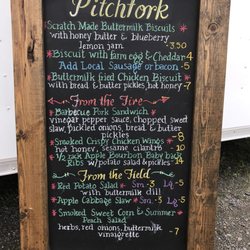 Pitchfork
Scratch Made Buttermilk Biscuits
with honey butter & blueberry
lemon jam -3.50
Biscuit with farm egg & cheddar-4
Add Local Sausage or bacon -5
Buttermilk fried Chicken Biscuit
with bread & butter pickles, hot honey -7
From the Fire
Barbecue Pork Sandwich
vinegar pepper sauce, chopped sweet
slaw, pickled onions, bread & butter
pickles -8
Smoked Crispy Chicken Wings -8
hot honey, sesame, cilantro -10
1/2 rack Apple Bourbon Baby back
Ribs w/ potato salad & pickles -14
From the Field
Red Potato Salad Sm.-3 Lg.-5
with buttermilk dill
Apple Cabbage Slaw Sm.-3 Lg.-5
Smoked Sweet Corn & Summer
Peach Salad
herbs, red onions, buttermilk -7
vinaigrette